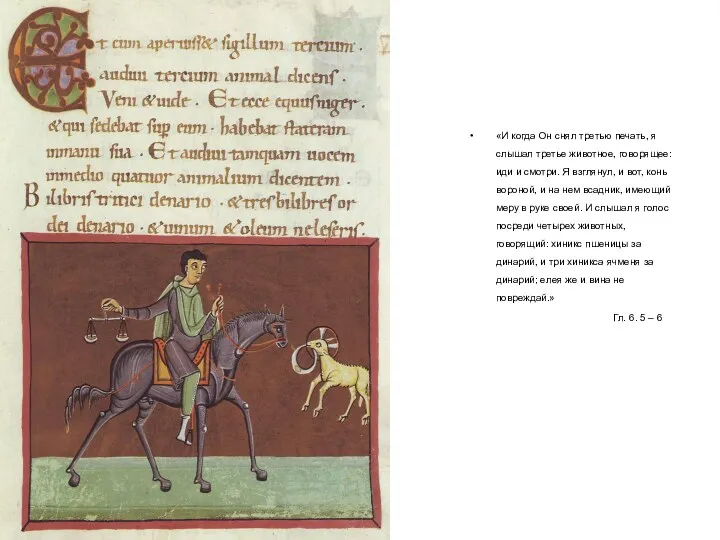 Et cum aperuiss& sigillum tercium.
audiui tercium animal dicens.
Veni & uide. Et ecce equus niger.
& qui sedebat sup eum. habebat stateram
in manu sua. Et audiui tamquam uocem
in medio quatuor animalium dicentem.
Bilibris tritici denario. & tres bilibres or
dei denario. & uinum & oleum ne leseris.
• «И когда Он снял третью печать, я
слышал третье животное, говорящее:
иди и смотри. Я взглянул, и вот, конь
вороной, и на нем всадник, имеющий
меру в руке своей. И слышал я голос
посреди четырех животных,
говорящий: хиникс пшеницы за
динарий, и три хиникса ячменя за
динарий; елея же и вина не
повреждай.»
Гл. 6. 5 – 6